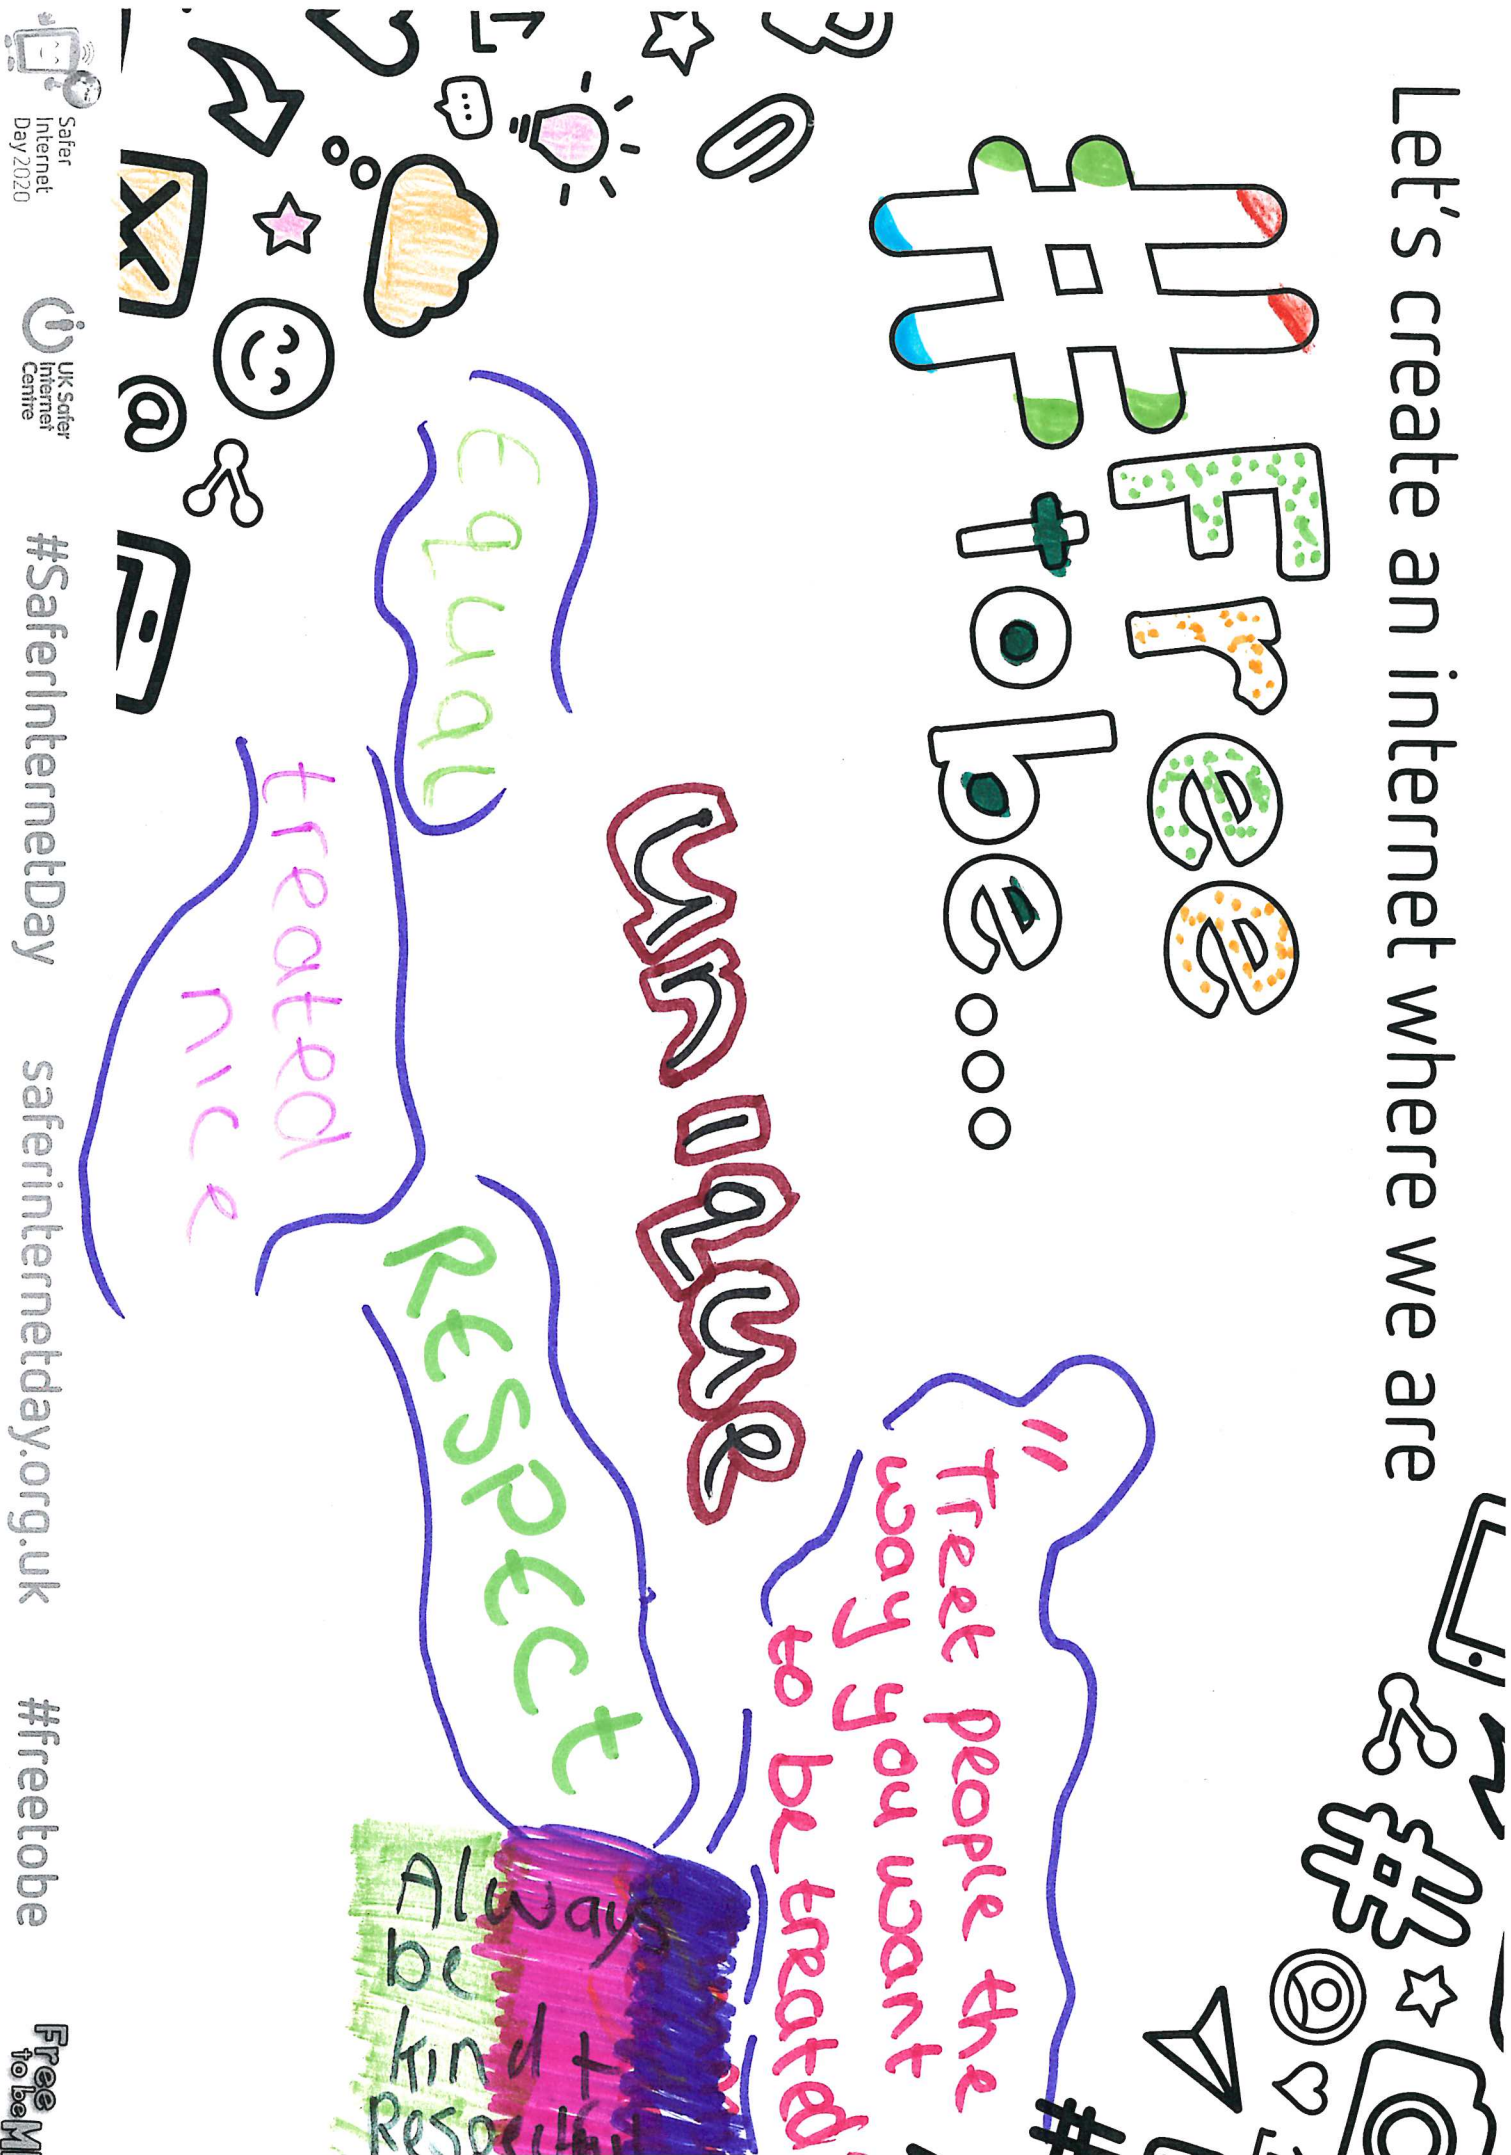 Let's create an internet where we are
#Free
to be...
unique
"Treet people the
way you want
to be treated
Equal
treated
nice
Respect
Always
be
kind +
Respectful
Safer
Internet
Day 2020
UK Safer
Internet
Centre
#SaferInternetDay
saferinternetday.org.uk
#freetobe
Free
to be